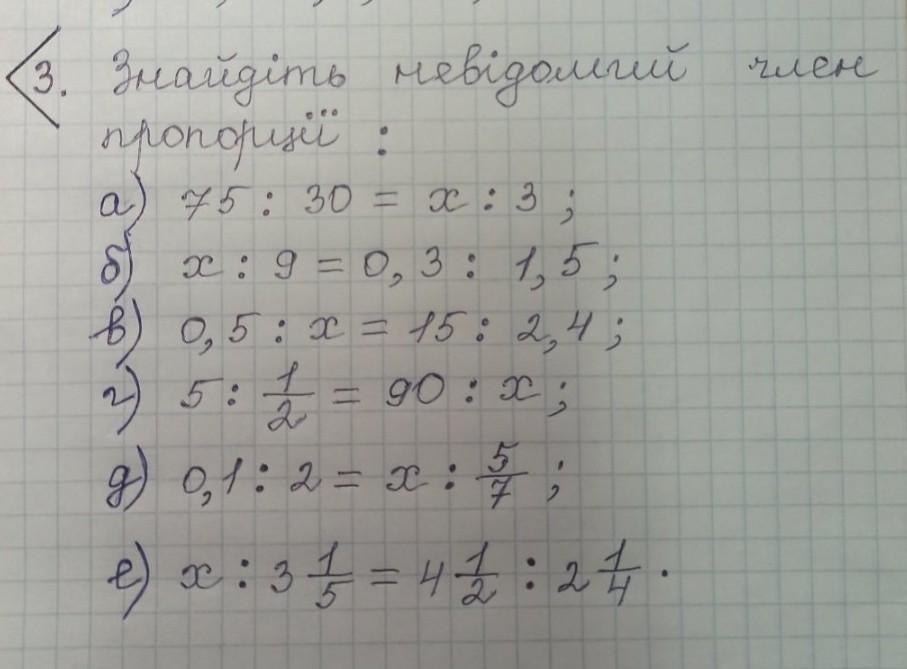 3. Знайдіть невідомий член
пропорції :
а) 75 : 30 = x : 3 ;
б) x : 9 = 0,3 : 1,5 ;
в) 0,5 : x = 15 : 2,4 ;
г) 5 : 1/2 = 90 : x ;
д) 0,1 : 2 = x : 5/7 ;
е) x : 3 1/5 = 4 1/2 : 2 1/4 .